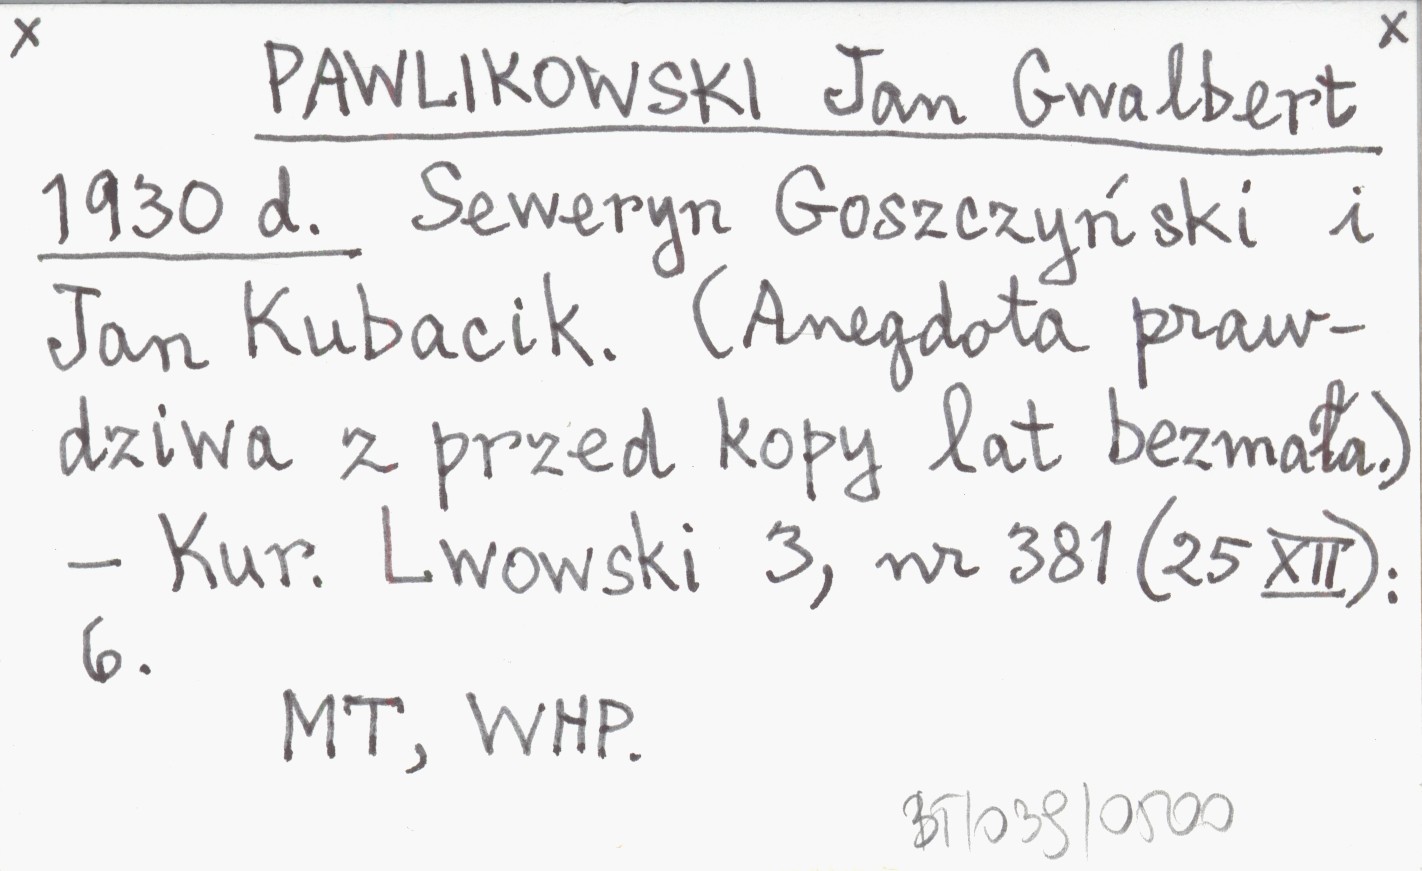 x x
PAWLIKOWSKI Jan Gwalbert
1930 d. Seweryn Goszczyński i
Jan Kubacik. (Anegdota praw-
dziwa z przed kopy lat bezmała.)
– Kur. Lwowski 3, nr 381 (25 XII):
6.
MT, WHP.
BT/039/0500